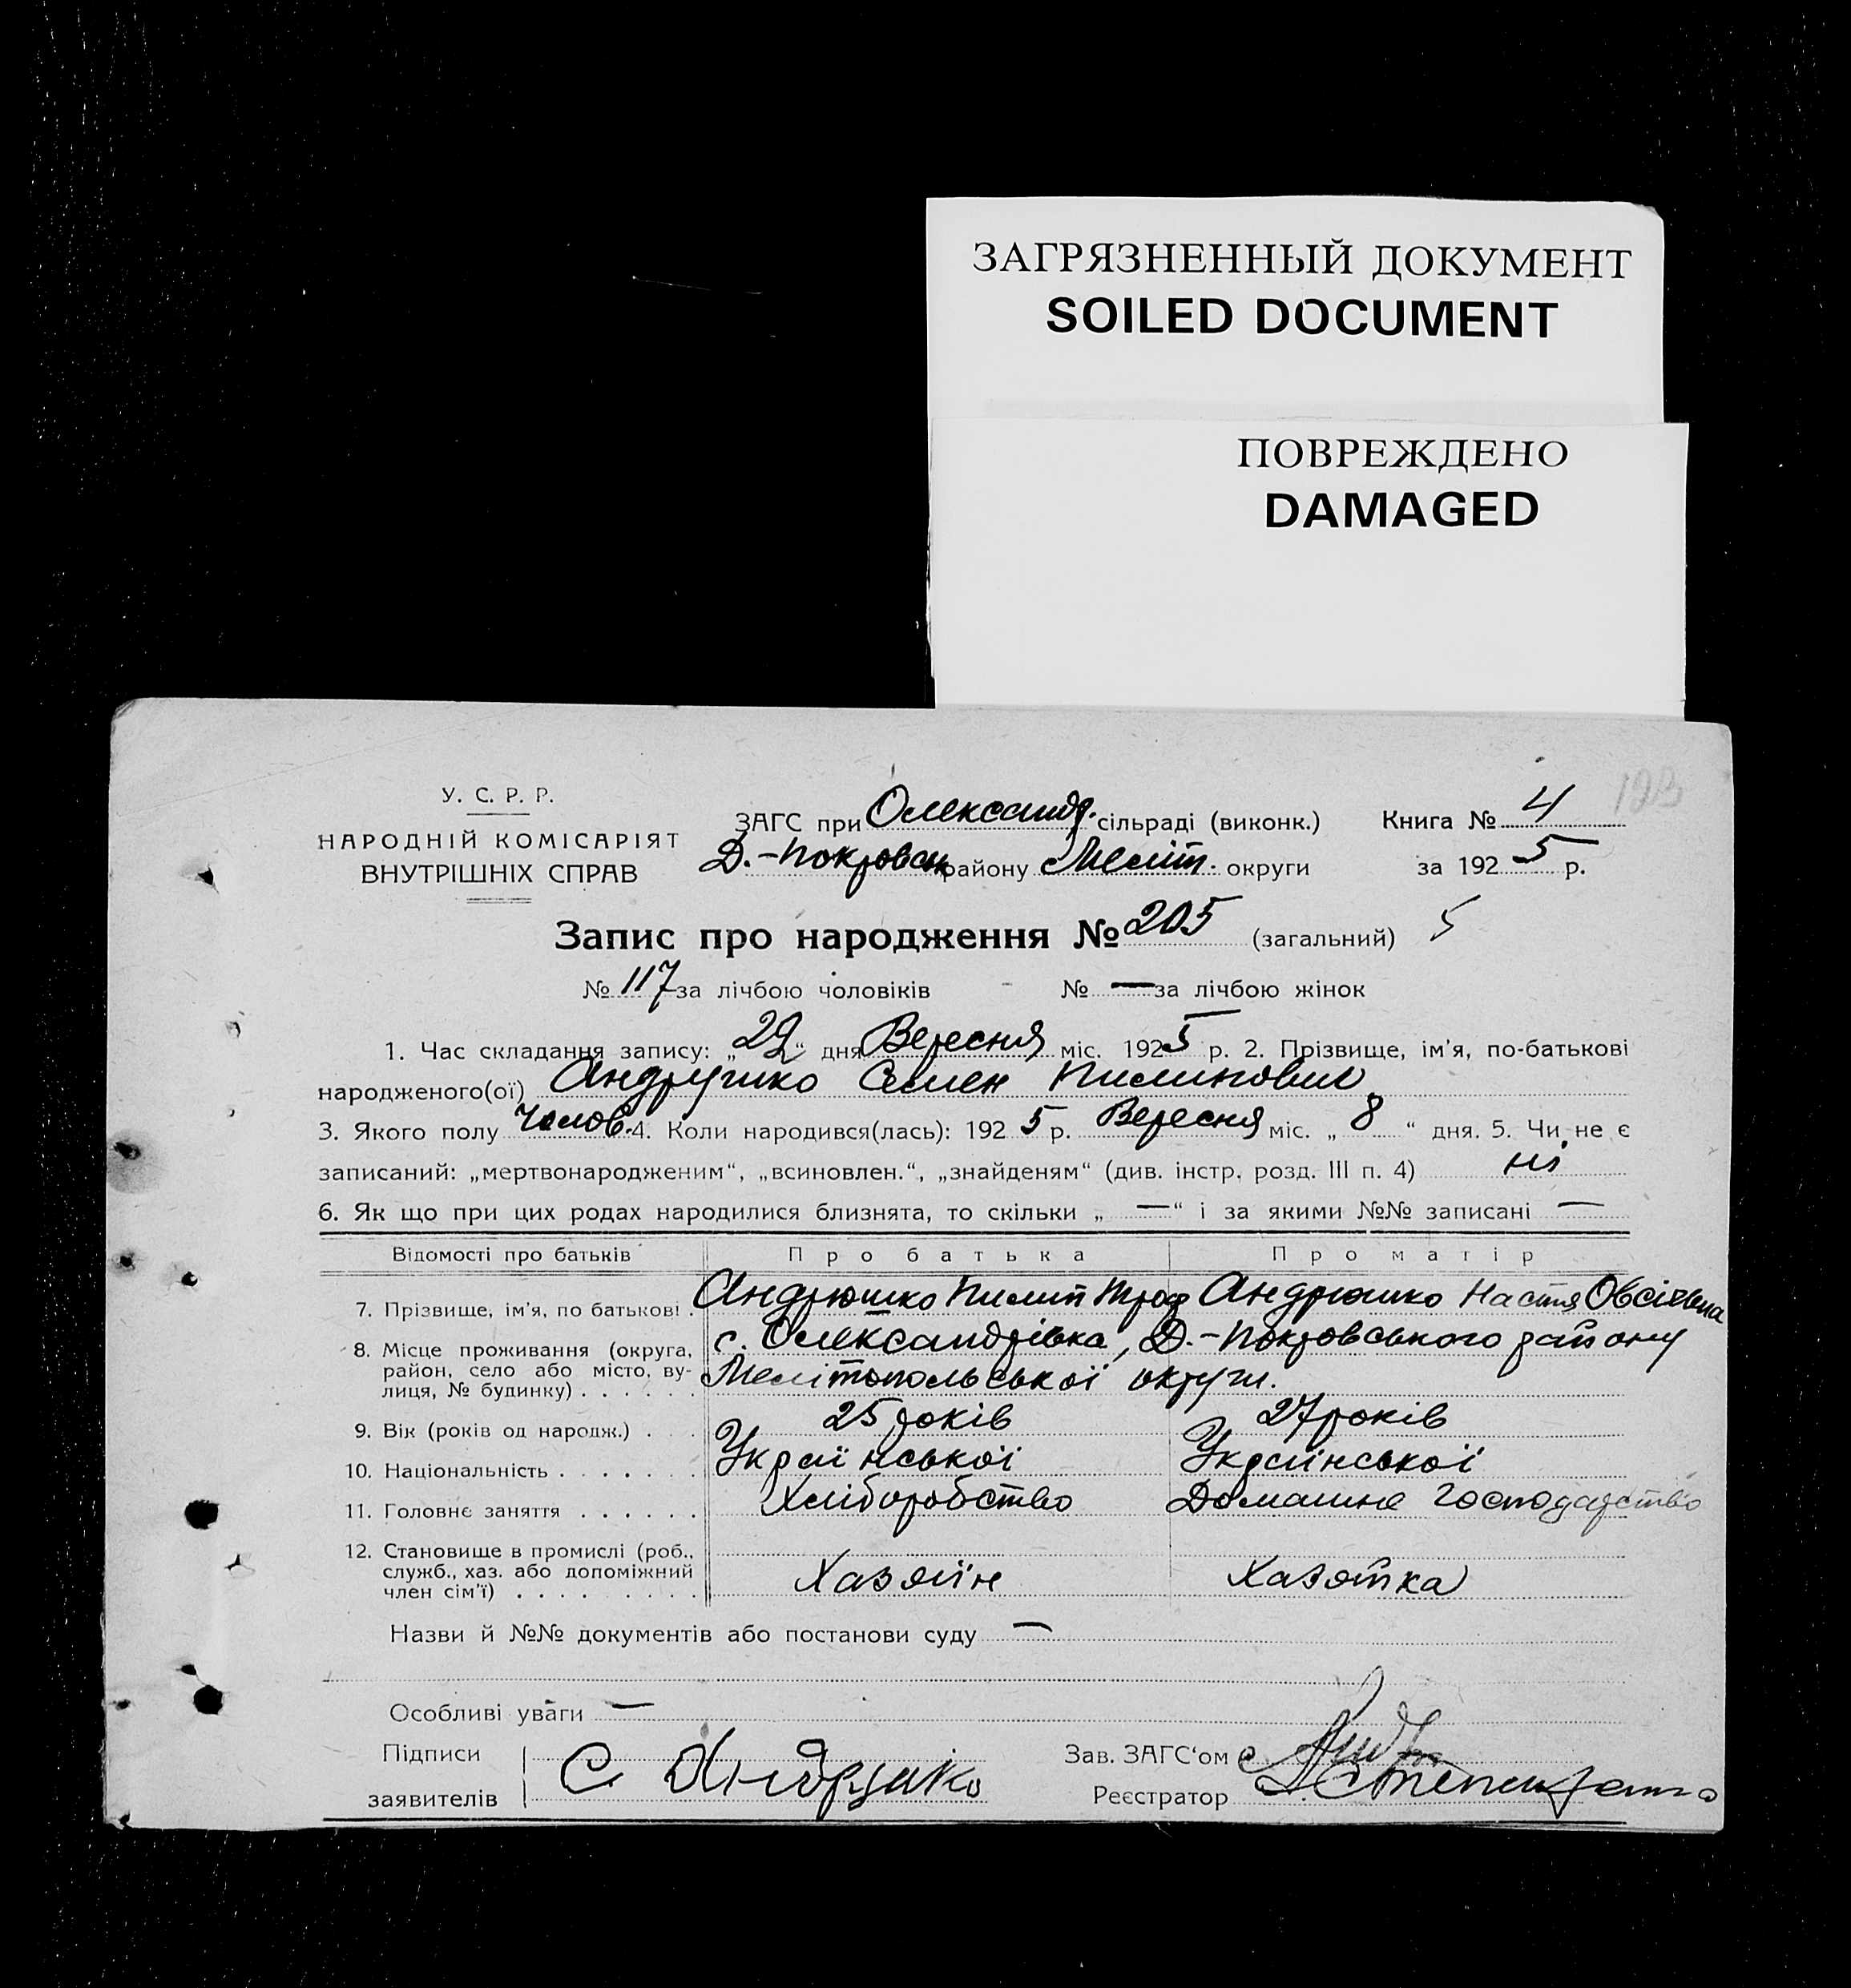 ЗАГРЯЗНЕННЫЙ ДОКУМЕНТ
SOILED DOCUMENT
ПОВРЕЖДЕНО
DAMAGED
123
У. С. Р. Р.
НАРОДНІЙ КОМІСАРІЯТ
ВНУТРІШНІХ СПРАВ
ЗАГС при Олександр. сільраді (виконк.) Книга № 4
Д.-Покровськ району Меліт. округи за 1925 р.
Запис про народження № 205 (загальний) 5
№ 117 за лічбою чоловіків № — за лічбою жінок
1. Час складання запису: „29“ дня Вересня міс. 1925 р. 2. Прізвище, ім'я, по-батькові
народженого(ої) Андрушко Семен Пилипович
3. Якого полу Чолов. 4. Коли народився(лась): 1925 р. Вересня міс. „8“ дня. 5. Чи не є
записаний: „мертвонародженим“, „всиновлен.“, „знайденям“ (див. інстр. розд. III п. 4) ні
6. Як що при цих родах народилися близнята, то скільки „—“ і за якими №№ записані —
Відомості про батьків Про батька Про матір
7. Прізвище, ім'я, по батькові Андрюшко Пилип Троф Андрюшко Настя Овсіївна
8. Місце проживання (округа, район, село або місто, вулиця, № будинку) с. Олександрівка, Д.-Покровського району
Мелітопольської округи.
9. Вік (років од народж.) 25 років 27 років
10. Національність Української Української
11. Головнє заняття Хліборобство Домашнє господарство
12. Становище в промислі (роб., служб., хаз. або допоміжний член сім'ї) Хазяїн Хазяйка
Назви й №№ документів або постанови суду —
Особливі уваги —
Підписи заявителів С. Андрушко
Зав. ЗАГС'ом
Реєстратор